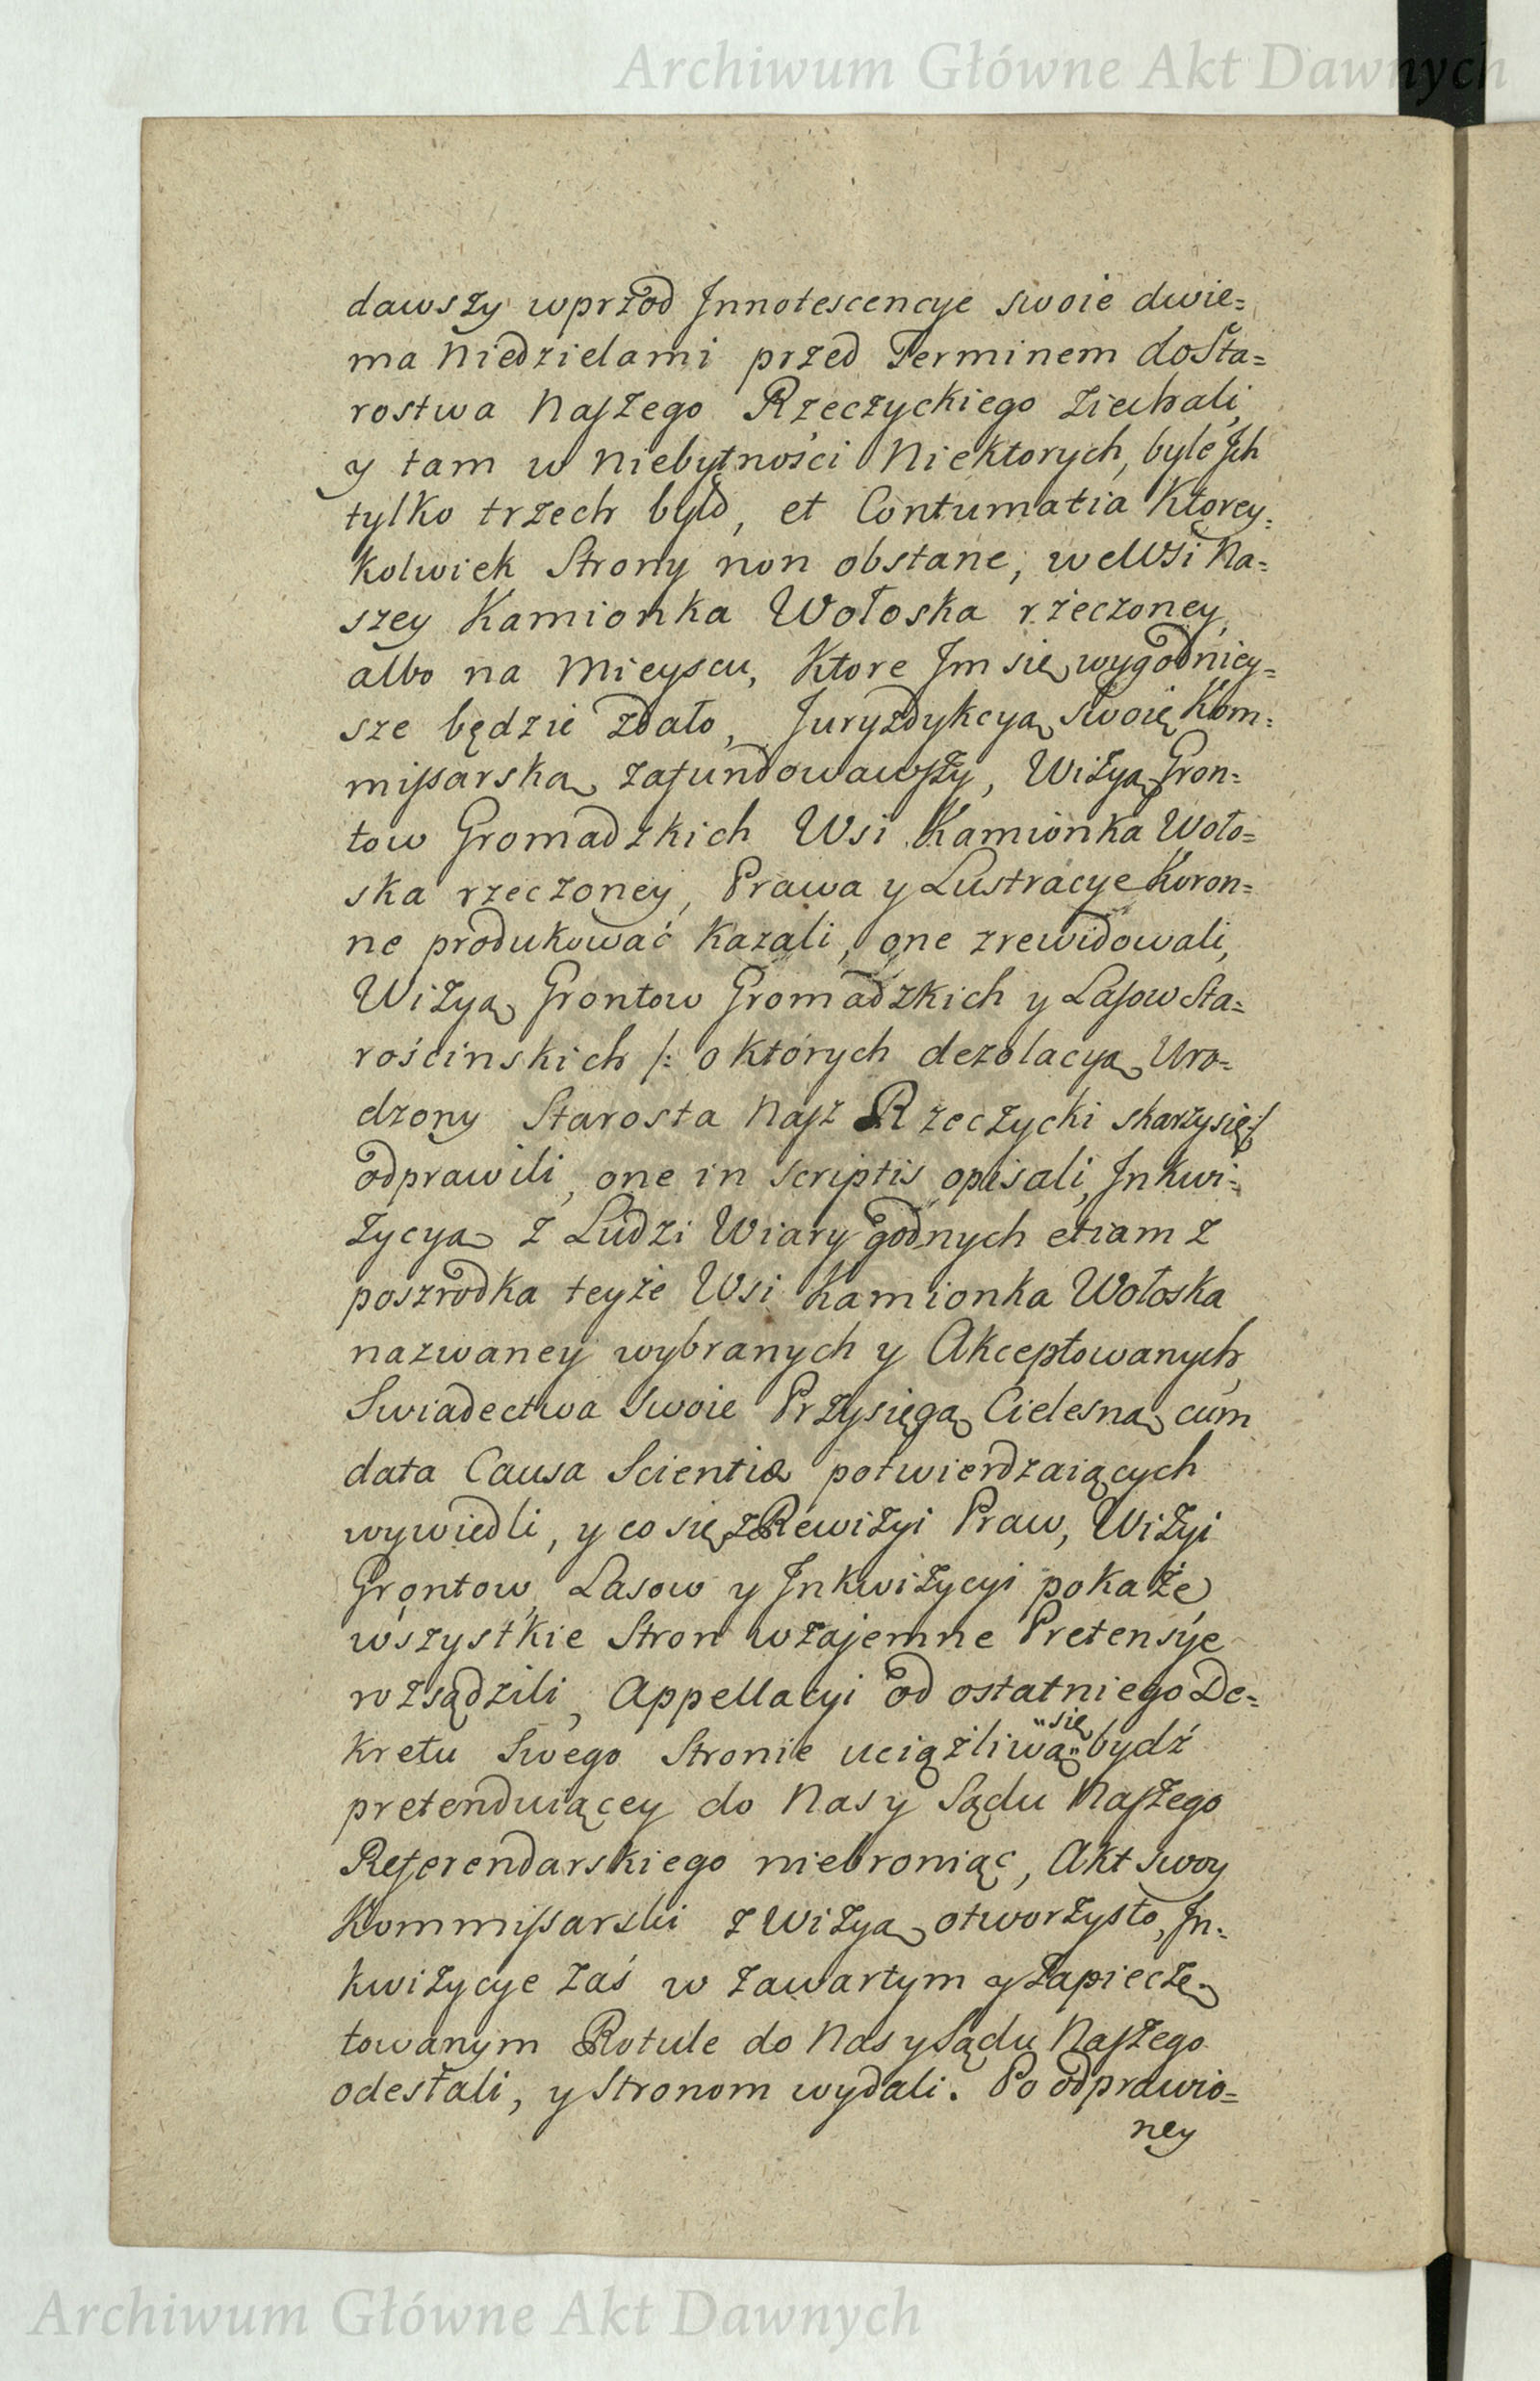 Archiwum Główne Akt Dawnych
dawszy wprzod Innotescencye swoie dwie=
ma Niedzielami przed Terminem do Sta=
rostwa Naszego Rzeczyckiego ziechali,
y tam w niebytności Niektorych, byle Ich
tylko trzech było, et Contumatia Ktorey=
kolwiek Strony non obstane, we Wsi Na=
szey Kamionka Wołoska rzeczoney,
albo na Mieyscu, Ktore Im się wygodniey=
sze będzie zdało, Juryzdykcyą Swoię Kom=
missarską zafundowawszy, Wizyą Gron=
tow Gromadzkich Wsi Kamionka Woło=
ska rzeczoney, Prawa y Lustracye Koron=
ne produkować kazali, one zrewidowali,
Wizyą Grontow Gromadzkich y Lasow Sta=
rościnskich /: o których dezolacyą Uro=
dzony Starosta Nasz Rzeczycki skarzy się :/
odprawili, one in scriptis opisali, Inkwi=
zycyą z Ludzi Wiary godnych etiam z
poszrodka teyże Wsi Kamionka Wołoska
nazwaney wybranych y Akceptowanych,
Swiadectwa Swoie Przysięgą Cielesną cum
data Causa Scientiæ potwierdzaiących
wywiedli, y co się z Rewizyi Praw, Wizyi
Grontow, Lasow y Inkwizycyi pokaże
wszystkie Stron wzajemne Pretensye
rozsądzili, Appellacyi od ostatniego De=
kretu Swego Stronie uciążliwą "się" bydź
pretenduiącey do Nas y Sądu Naszego
Referendarskiego niebroniąc, Akt Swoy
Kommissarski z Wizyą otworzysto, In=
kwizycye zaś w zawartym y zapieczę=
towanym Rotule do Nas y Sądu Naszego
odesłali, y Stronom wydali. Po odprawio=
ney
Archiwum Główne Akt Dawnych